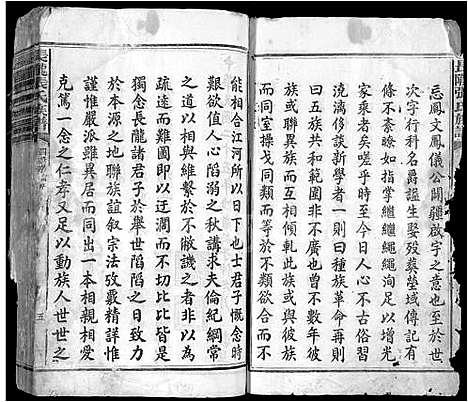 長隴張氏族譜
忘鳳文鳳儀公開疆啟宇之意也至於世
次字行科名爵謚生娶歿葬塋域傳記有
條不紊瞭如指掌繼繼繩繩洵足以增光
家乘者矣嗟乎時至今日人心不古俗習
澆漓侈談新學者一則曰種族革命再則
曰五族共和範圍非不廣也曾不數年彼
族或聯異族而互相團結此族或與彼族
而同室操戈同類而等於不類欲合而不
能相合江河所以日下也士君子慨念時
艱欲值人心陷溺之秋講求夫倫紀綱常
之道以相與維繫於不敝譏之者非以為
疏遠而難圖即以迂濶而不切比比皆是
獨念長隴諸君子於舉世陷陷之日致力
於本源之地聯族誼叙宗法攷覈精詳惟
謹惟嚴派雖異居而同出一本相親相愛
克篤一念之仁孝又足以動族人世世之
長隴張氏族譜
五